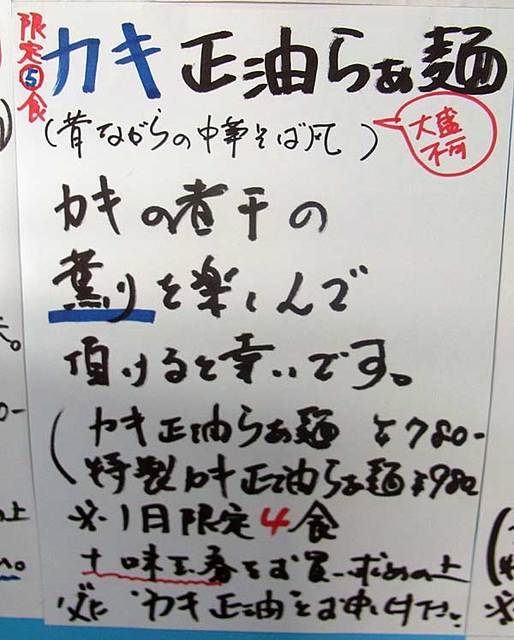 限定⑤食
カキ正油らぁ麺
(昔ながらの中華そば風)
大盛
不可
カキの煮干の
薫りを楽しんで
頂けると幸いです。
(カキ正油らぁ麺 ¥780-
特製カキ正油らぁ麺¥980
※1日限定4食
味玉香をお買い求めの上
必に"カキ正油"とお申し付け下さい